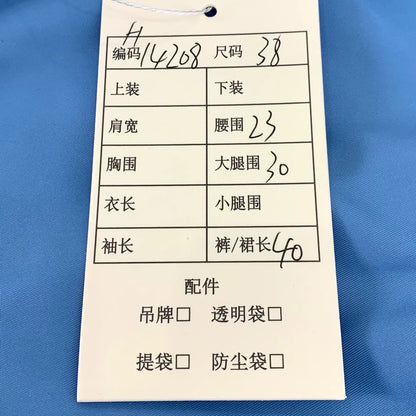 H
编码14208 尺码38
上装 下装
肩宽 腰围23
胸围 大腿围30
衣长 小腿围
袖长 裤/裙长40
配件
吊牌□ 透明袋□
提袋□ 防尘袋□